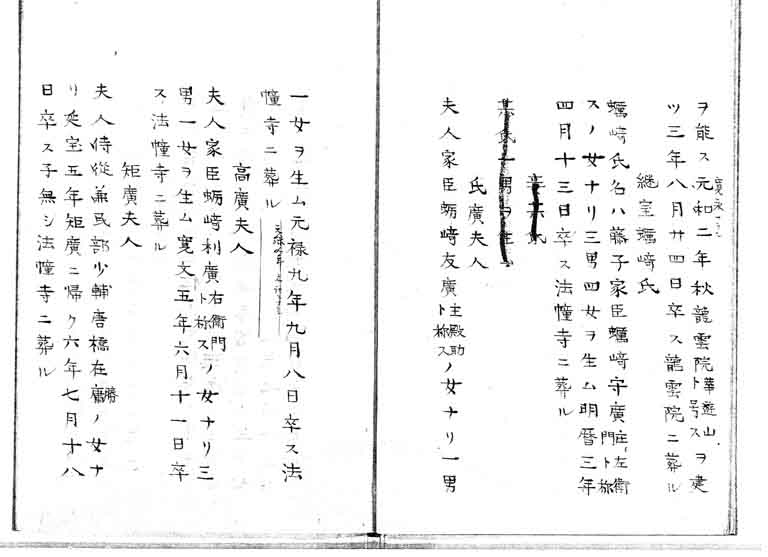 ヲ能ス元和二年秋龍雲院華遊山ト号スヲ建
ツ三年八月廿四日卒ス龍雲院ニ葬ル
継室蠣崎氏
蠣崎氏名ハ藤子家臣蠣崎守廣左衛門ト称
スノ女ナリ三男四女ヲ生ム明暦三年
四月十三日卒ス法幢寺ニ葬ル
某氏一男ヲ生ム
氏廣夫人
夫人家臣蛎崎友廣主殿助ト称スノ女ナリ一男
一女ヲ生ム元禄九年九月八日卒ス法
幢寺ニ葬ル
高廣夫人
夫人家臣蛎崎利廣右衛門ト称スノ女ナリ三
男一女ヲ生ム寛文五年六月十一日卒
ス法幢寺ニ葬ル
矩廣夫人
夫人侍従兼民部少輔唐橋在廉勝ノ女ナ
リ延宝五年矩廣ニ帰ク六年七月十八
日卒ス子無シ法幢寺ニ葬ル